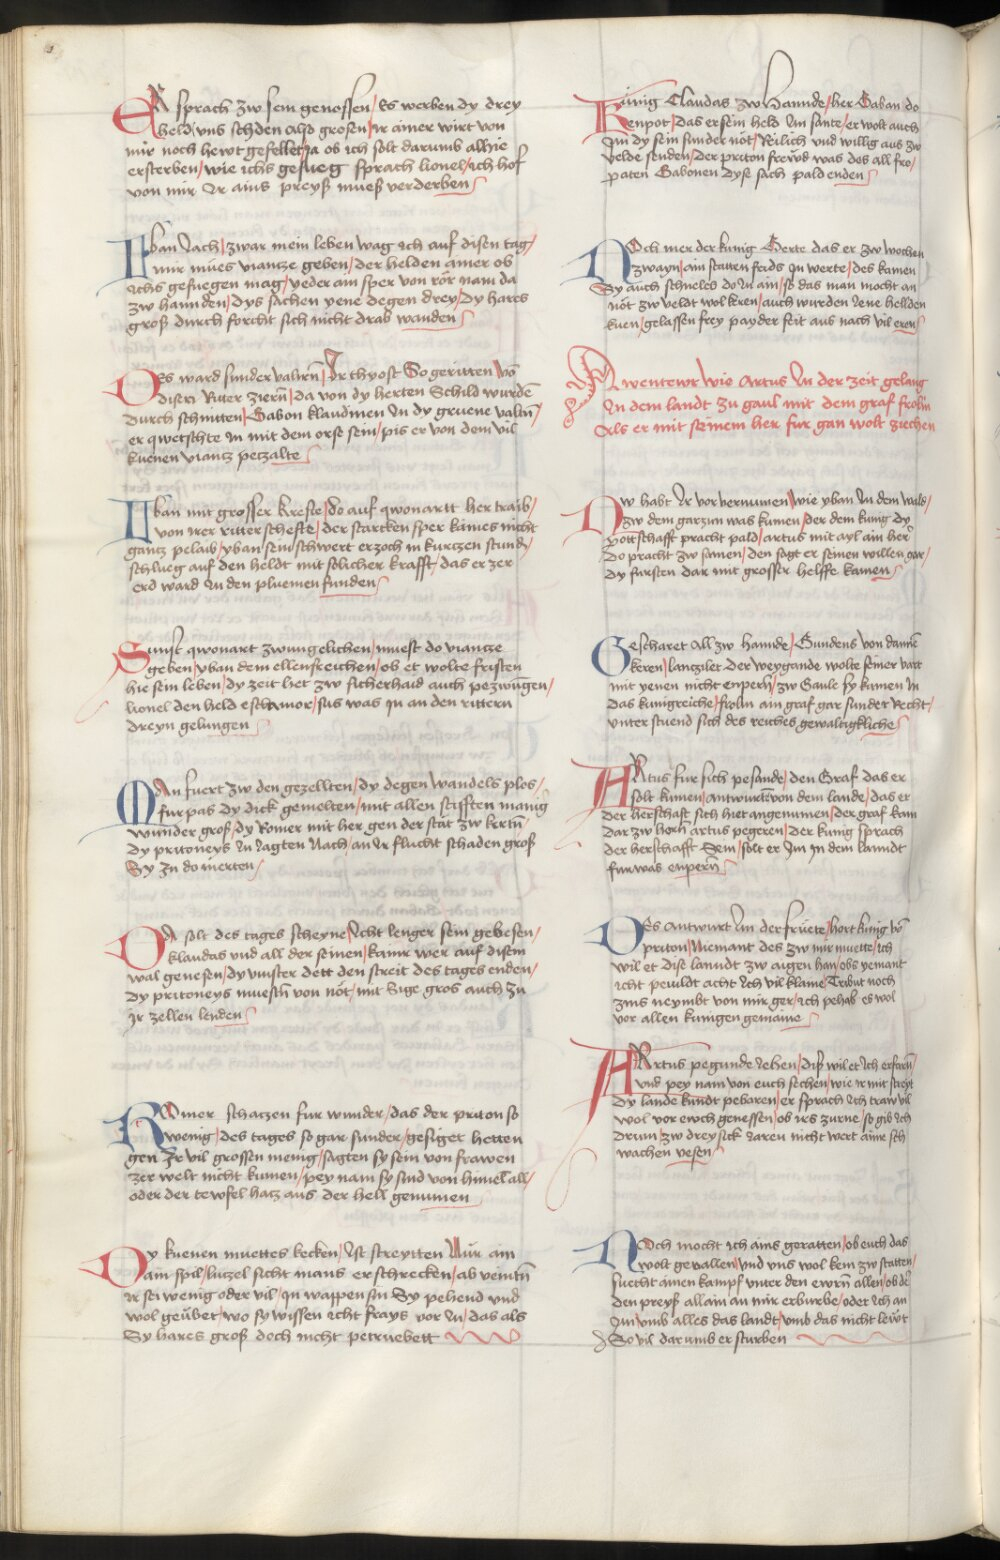 ER sprach zw sein genossen / Es werben dy drey
held / vns schden also grosen / ir aimer wirt von
mir noch hewt gefellet / ja ob ich solt darumb alhie
ersterben / wie ichs gefueg sprach lionel / ich hof
von mir Ir ains preyß mueß verderben
Yban Jach / zwar mein leben wag ich auf disen tag /
mir mues viantze geben / der helden aimer ob
ichs gefuegen mag / yeder ain sper von rör nam da
zw hannden / dys sachen yene degen drey / dy hares
groß durch forcht sich nicht drab wanden
Des ward sunder valirñ / Ir thyost So geritten võ
disen Ritter ziernn / da von dy herten Schild wurdñ
durch schnitten / Gabon klaudinen In dy gruene valirñ /
er qwetschte in mit dem orse sein / pis er von dem vil
kuenen viantz petzalte
Yban mit grosser krefte / do auf qwonartt her traib /
von irer ritterschefte / der starcken sper kaines nicht
gantz pelaib / yban sein schwert erzoch in kurtzen stund /
schlueg auf den heldt mit solicher krafft / das er zer
erd ward In den pluemen funden
Sunst qwonart zwungelichen / muest do viantze
geben / yban dem ellensreichen / ob et wolte fristen
hie sein leben / dy zeit het zw sicherhaid auch pezwungen /
lionel den held eschamor / sus was in an den rittern
dreyn gelungen
Man fuert zw den gezellten / dy degen wandels plos /
furpas dy dick gemelten / mit allen stifften manig
wunder groß / dy Romer mit her gen der stat zw kertñ /
dy pritoneys In Jagten Nach / an Ir flucht schaden groß
Sy In do merten /
Da solt des tages scheyne / Icht lenger sein gebesen /
klaudas vnd all der seinen / kaimr wer auf disem
wal genesen / dy vinster dett den streit des tages enden /
dy pritoneys muestñ von nöt / mit Sige gros auch zu
Ir zellen lenden
Römer schatzen fur wunder / das der priton so
wenig / des tages so gar sunder / gesiget hetten
gen Ir vil grossen menig / sagten sy sein von frawen
zer welt nicht kumen / pey nam sy sind von himel all /
oder der tewfel hatz aus der hell genumen
Dy kuenen muettes kecken / Ist streytten Nur ain
ain spil / lutzel sicht mans erschrecken / ab veintñ
ir sei wenig oder vil / in wappen sin Sy pehend vnd
wol geubet / wo sy wissen icht frays vor In / das als
Sy hares groß doch nicht petruebett
Kunig Claudas zw Hannde / her Gaban do
Kenpot / das er sein held Im sante / er wolt auch
Im dy sein sunder nöt / Reilich vnd willig aus zw
velde senden / der priton frewd was des all fro /
paten Gabonen dyse sach pald enden
Noch mer der kunig Gerte das er zw wochen
zwayn / ain statten frids In werte / des kamen
Sy auch schnelch do In ain / so das man mocht an
nöt zw veldt wol keren / auch wurden Jene hellden
kuen / gelassen frey payder seit aus nach vil eren
Awentewr wie Artus In der zeit gelang
In dem landt zu gaul mit dem graf frolin
Als er mit seinem her fur gan wolt ziechen
Nw habt Ir vor vernumen / wie yban In dem wald /
zw dem garzun was kumen / der dem kung dy
pottschafft pracht pald / artus mit ayl ain her
do pracht zw samen / den sagt er seinen willen gar /
dy fursten dar mit grosser helffe kamen
Gescharet All zw hannde / Sundens von danñe
keren / lanzilet der weygande wolte seiner vart
mit yenen nicht enpern / zw Gaule sy kamen In
das kunigreiche / frolin ain graf gar sunder Recht /
vnter stuend sich des reiches gewaltigkliche
ARtus fur sich pesande / den Graf das er
solt kumen / antwurtt von dem lande / das er
der herschaft sich hiet angenumen / der graf kam
dar zw horn artus pegeren / der kunig sprach
der herschafft dein / solt er Im In dem lanndt
furwas enpern
Des antwurt Im der fruete / hort kunig võ
priton / Niemant des zw mir muette / ich
wil et dise lanndt zw augen han / obs yemant
icht peuildt acht Ich vil klaine / Tribut noch
zins neymbt von mir ger / ich pehab es wol
vor allen kunigen gemaine
ARtus pegunde Jehen / diß wil et Ich erfarñ
vnd pey nam von euch sechen / wie ir mit streyt
dy lande kundt pebaren / er sprach Ich traw vil
wol vor ewch genessen / ob irs zurne / so gib Ich
drum / zw dreysick Jaren nicht wert aine sch
wachen vesen
Noch mocht ich ains geratten / ob euch das
wolt gevallen / vnd vns wol kem zw statten /
suecht ainen kampf vnter den ewrñ allen / ob dˢ
den preyß allain an mir erburbe / odet ich an
Im vmb alles das landt / vmb das nicht lewt
So vil darumb er sturben